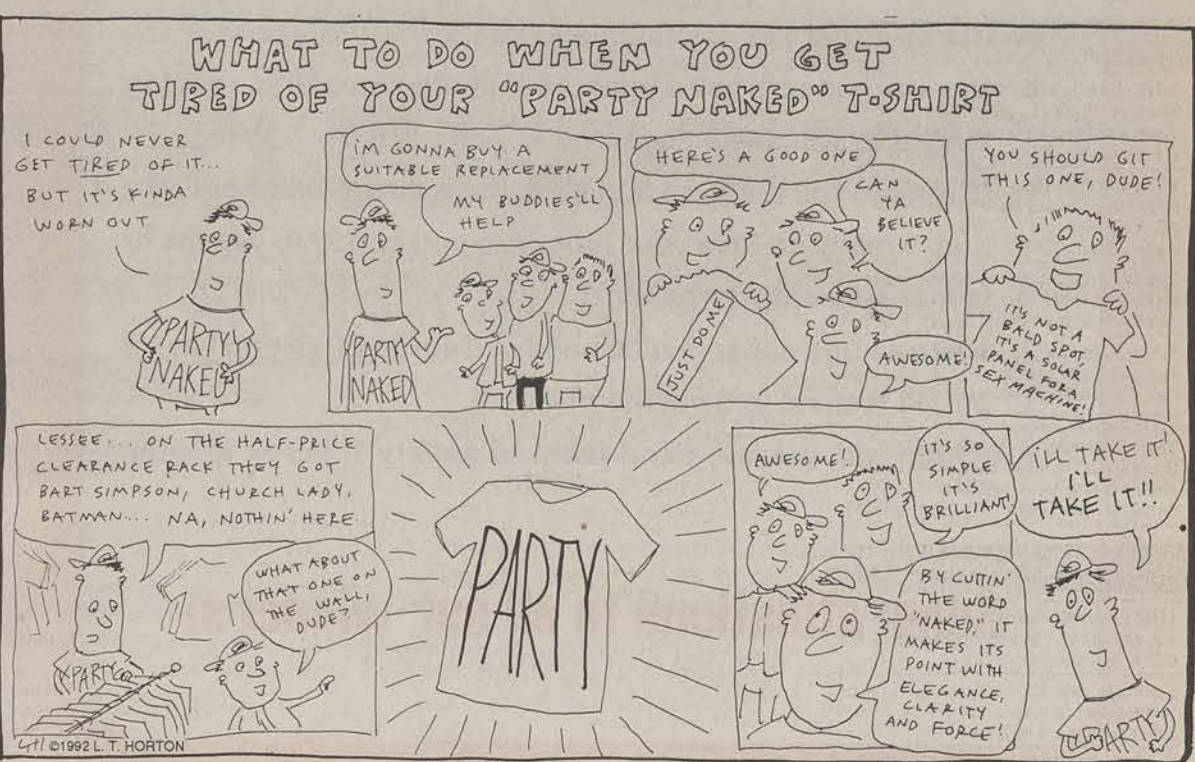 WHAT TO DO WHEN YOU GET
TIRED OF YOUR "PARTY NAKED" T-SHIRT
I COULD NEVER
GET TIRED OF IT...
BUT IT'S KINDA
WORN OUT
PARTY
NAKED
I'M GONNA BUY A
SUITABLE REPLACEMENT
MY BUDDIES'LL
HELP
PARTY
NAKED
HERE'S A GOOD ONE
CAN
YA
BELIEVE
IT?
JUST DO ME
AWESOME!
YOU SHOULD GIT
THIS ONE, DUDE!
IT'S NOT A
BALD SPOT,
IT'S A SOLAR
PANEL FOR A
SEX MACHINE!
LESSEE... ON THE HALF-PRICE
CLEARANCE RACK THEY GOT
BART SIMPSON, CHURCH LADY,
BATMAN... NA, NOTHIN' HERE.
WHAT ABOUT
THAT ONE ON
THE WALL,
DUDE?
PARTY
LTH ©1992 L. T. HORTON
PARTY
AWESOME!
IT'S SO
SIMPLE
IT'S
BRILLIANT!
BY CUTTIN'
THE WORD
"NAKED," IT
MAKES ITS
POINT WITH
ELEGANCE,
CLARITY
AND FORCE!
I'LL TAKE IT!
I'LL
TAKE IT!!
PARTY